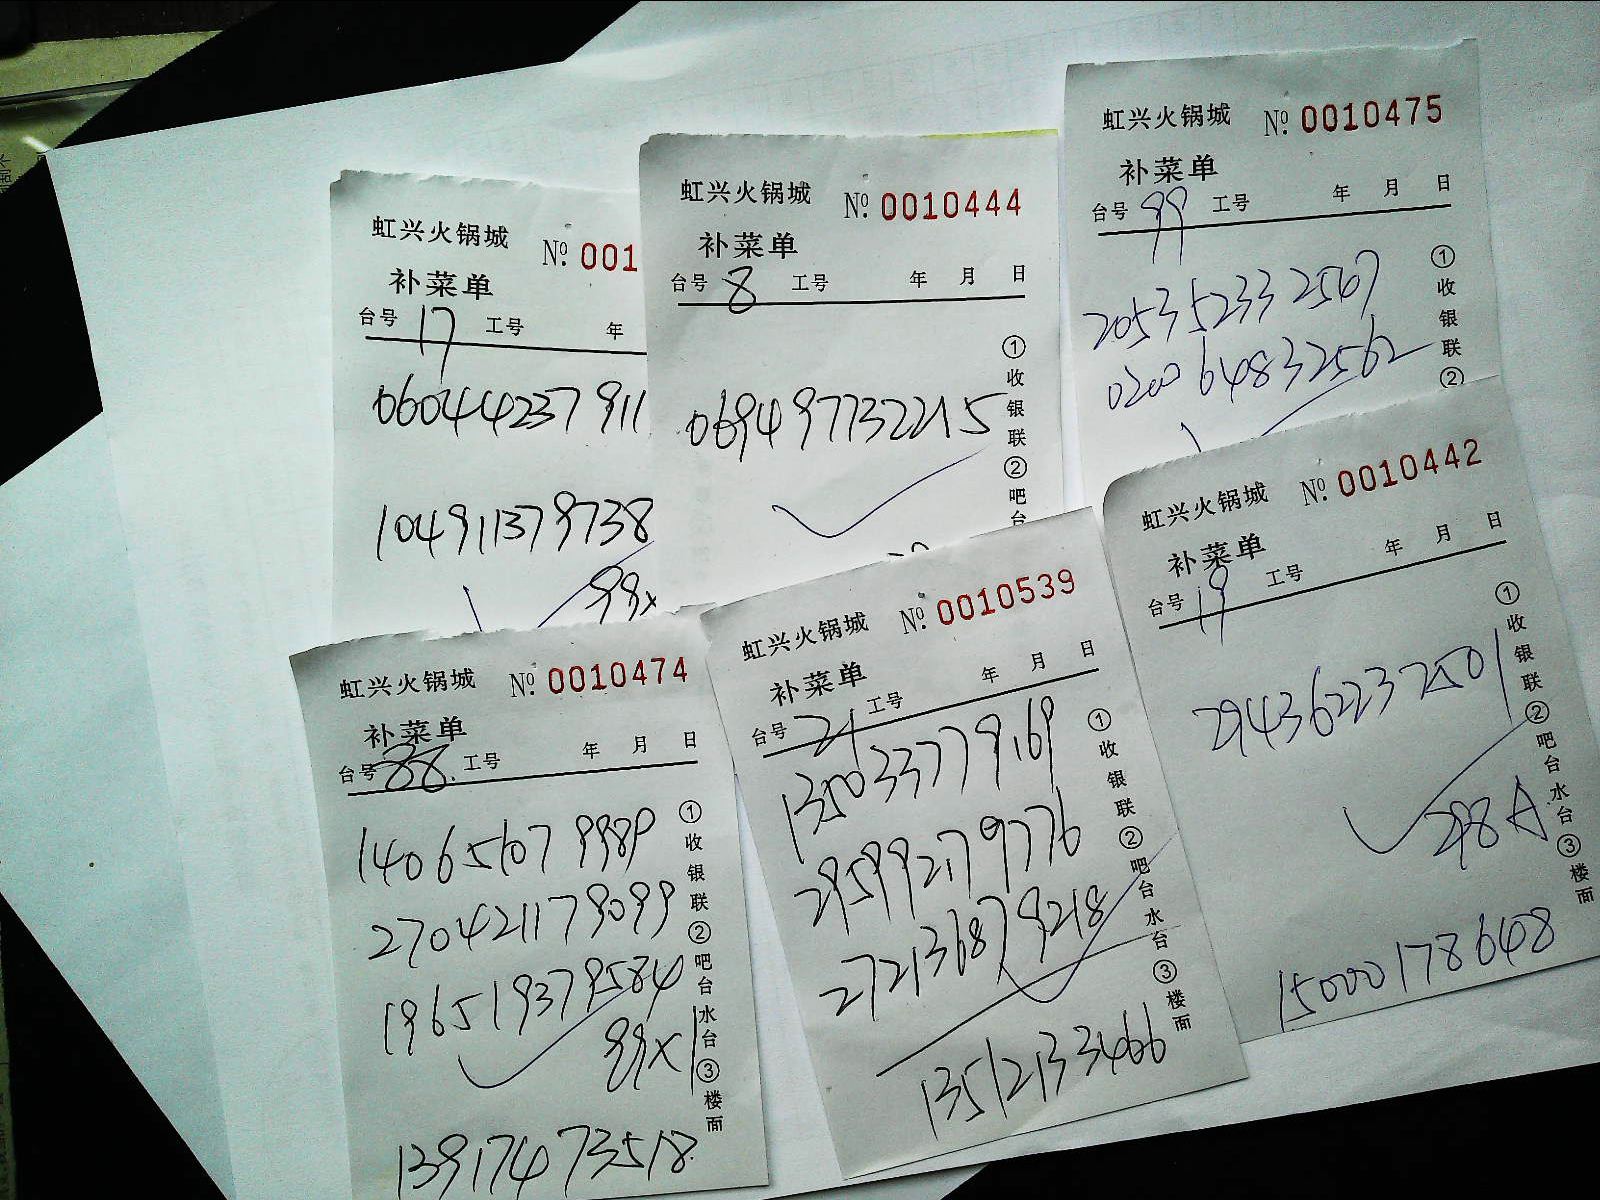 虹兴火锅城 №. 001
补菜单
台号 17 工号 年
060444237911
104911379738
99x
虹兴火锅城 №. 0010444
补菜单
台号 8 工号 年 月 日
069497732215
①收银联②吧台
虹兴火锅城 №. 0010475
补菜单
台号 99 工号 年 月 日
205352332567
020064832562
①收银联②
虹兴火锅城 №. 0010474
补菜单
台号 88. 工号 年 月 日
140651079989
270421179099
196519379584
99x1
13917473518
①收银联②吧台水台③楼面
虹兴火锅城 №. 0010539
补菜单
台号 21 工号 年 月 日
135033779169
295992179776
272136879218
13512133466
①收银联②吧台水台③楼面
虹兴火锅城 №. 0010442
补菜单
台号 19 工号 年 月 日
294362232501
298A
15000178648
①收银联②吧台水台③楼面